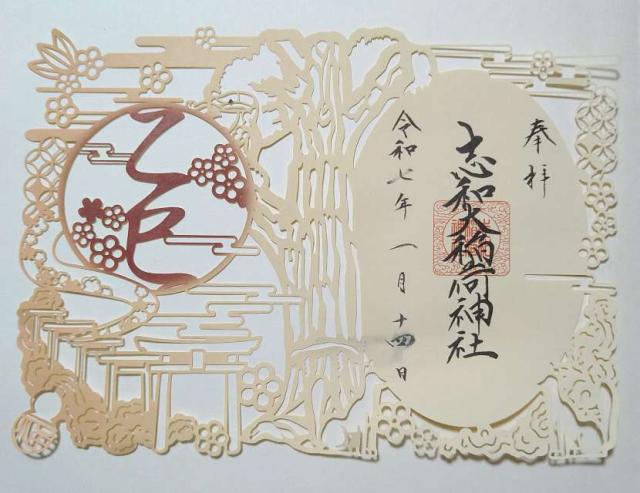 奉拝
志和大稲荷神社
令和七年一月十四日
乙巳